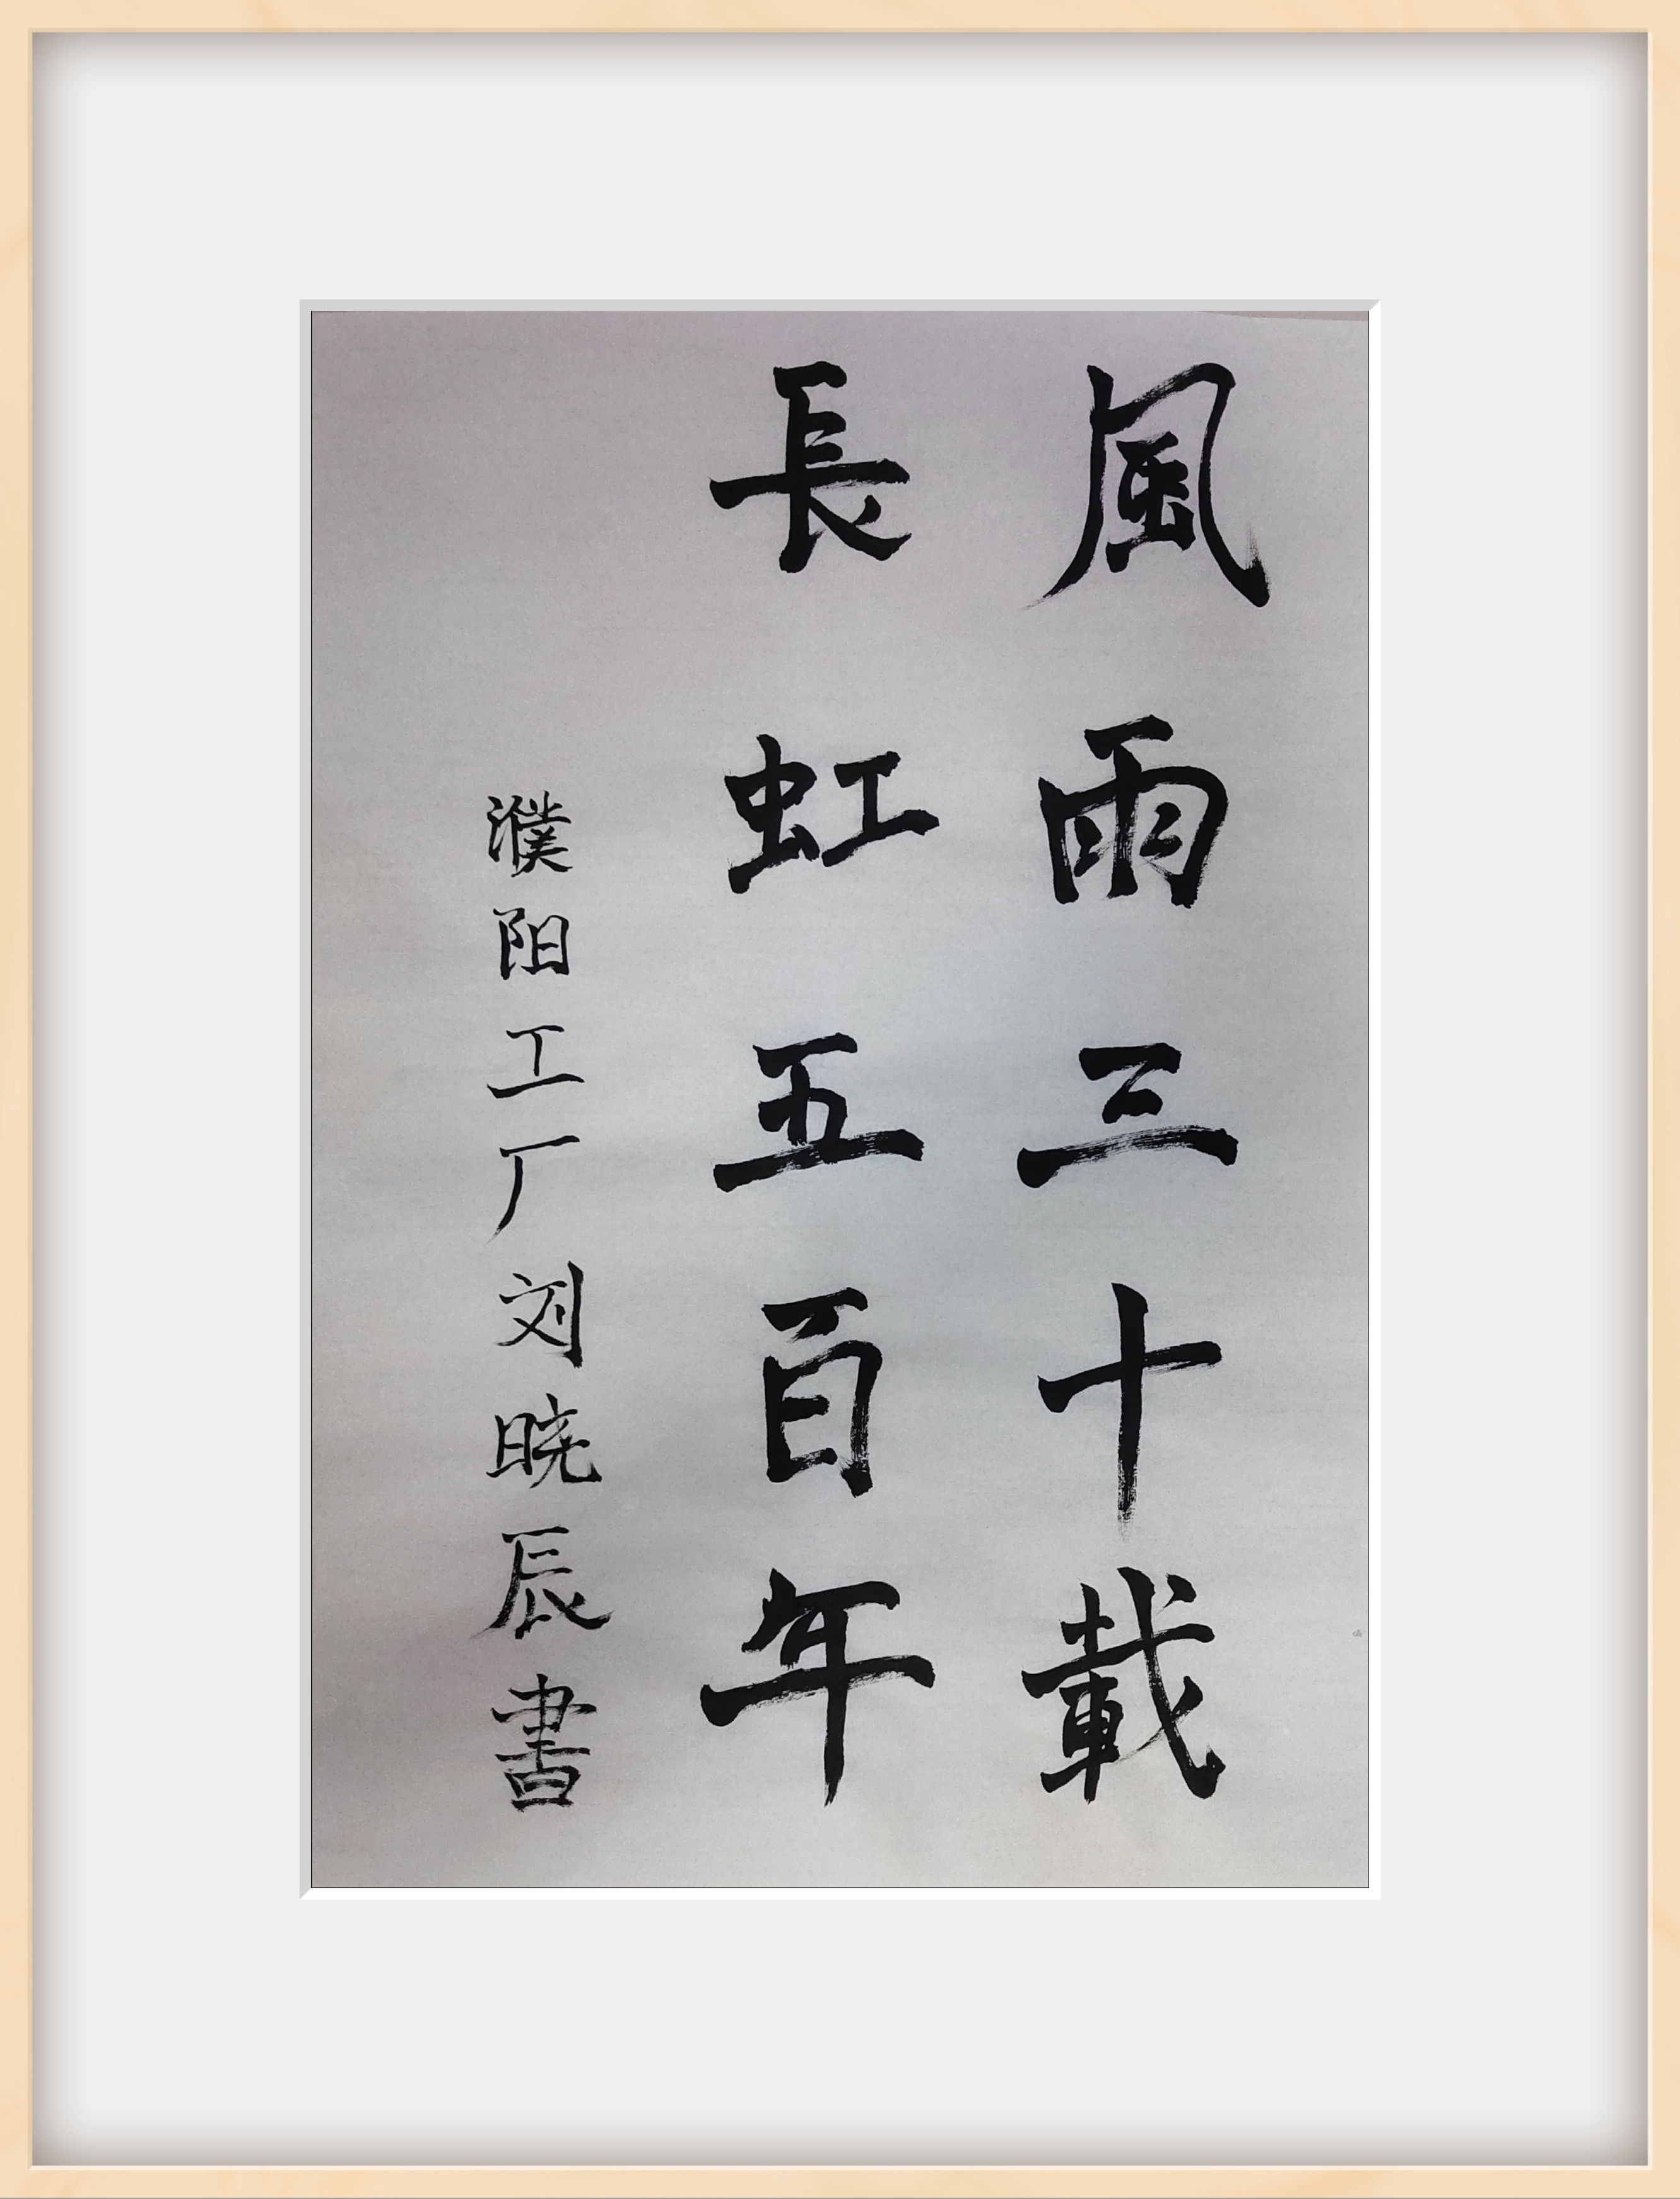 風雨三十載
長虹五百年
濮阳工厂刘晓辰書